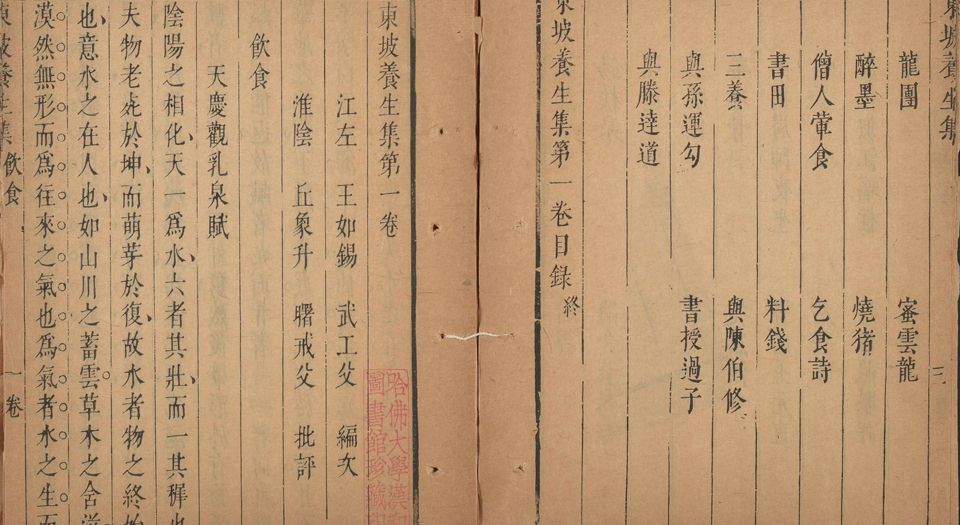 東坡養生集
三
龍團 蜜雲龍
醉墨 燒猪
僧人葷食 乞食詩
書田 料錢
三養 與陳伯修
與孫運勾 書授過子
與滕達道
東坡養生集第一卷目録終
東坡養生集第一卷
哈佛大學漢和
圖書館珍藏印
江左 王如錫 武工父 編次
淮陰 丘象升 曙戒父 批評
飲食
天慶觀乳泉賦
陰陽之相化天一爲水六者其壯而一其穉也
夫物老死於坤而萌芽於復故水者物之終始
也意水之在人也如山川之蓄雲草木之含滋
漠然無形而爲往來之氣也爲氣者水之生而
東坡養生集 飲食 一 卷